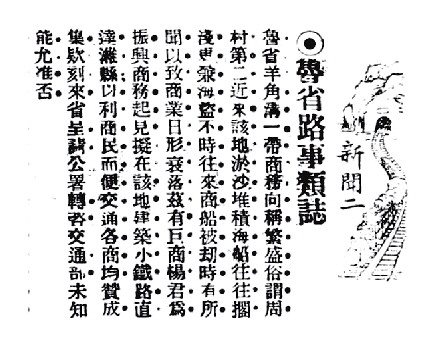 新聞二
◉魯省路事類誌
魯省羊角溝一帶商務向稱繁盛俗謂周
村第二近來該地淤沙堆積海船往往擱
淺更兼海盜不時往來商船被劫時有所
聞以致商業日形衰落茲有巨商楊君爲
振興商務起見擬在該地建築小鐵路直
達濰縣以利商民而便交通各商均贊成
集欵刻來省呈請公署轉咨交通部未知
能允准否